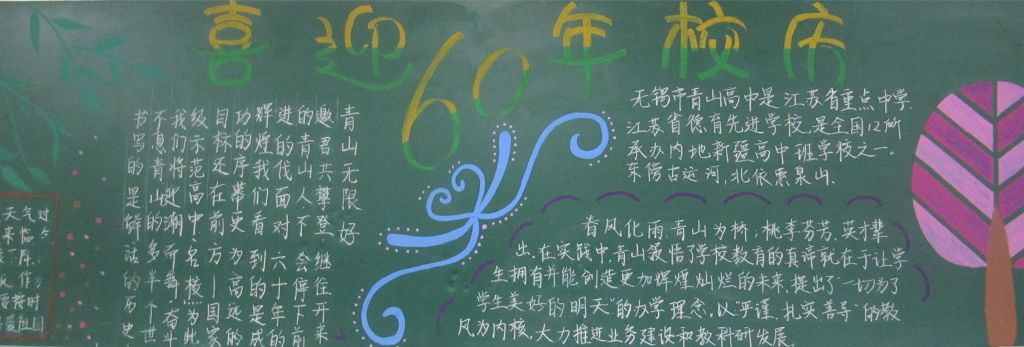 喜迎60年校庆
青山无限好
趣君共攀登,继往开来
的青山人不会停下前
进的伐面对六十年的
辉煌我们看到的是成
功的序带更为高远的
目标还在前方—国家
级示范高中,名校为此
我们将 奋斗
不息青山的多半个世
书写的是鲜活的历史
无锡市青山高中是江苏省重点中学.
江苏省德育先进学校,是全国12所
承办内地新疆高中班学校之一.
东傍古运河,北依惠泉山.
春风化雨,青山为桥,桃李芬芳,英才辈
出.在实践中,青山表悟了学校教育的真谛就在于让学
生拥有并能创造更加辉煌灿烂的未来,提出了"一切为了
学生美好的明天"的办学理念,以"严谨、扎实善导"的教
风为内核,大力推进业务建设和教科研发展.
天气
来临
按时